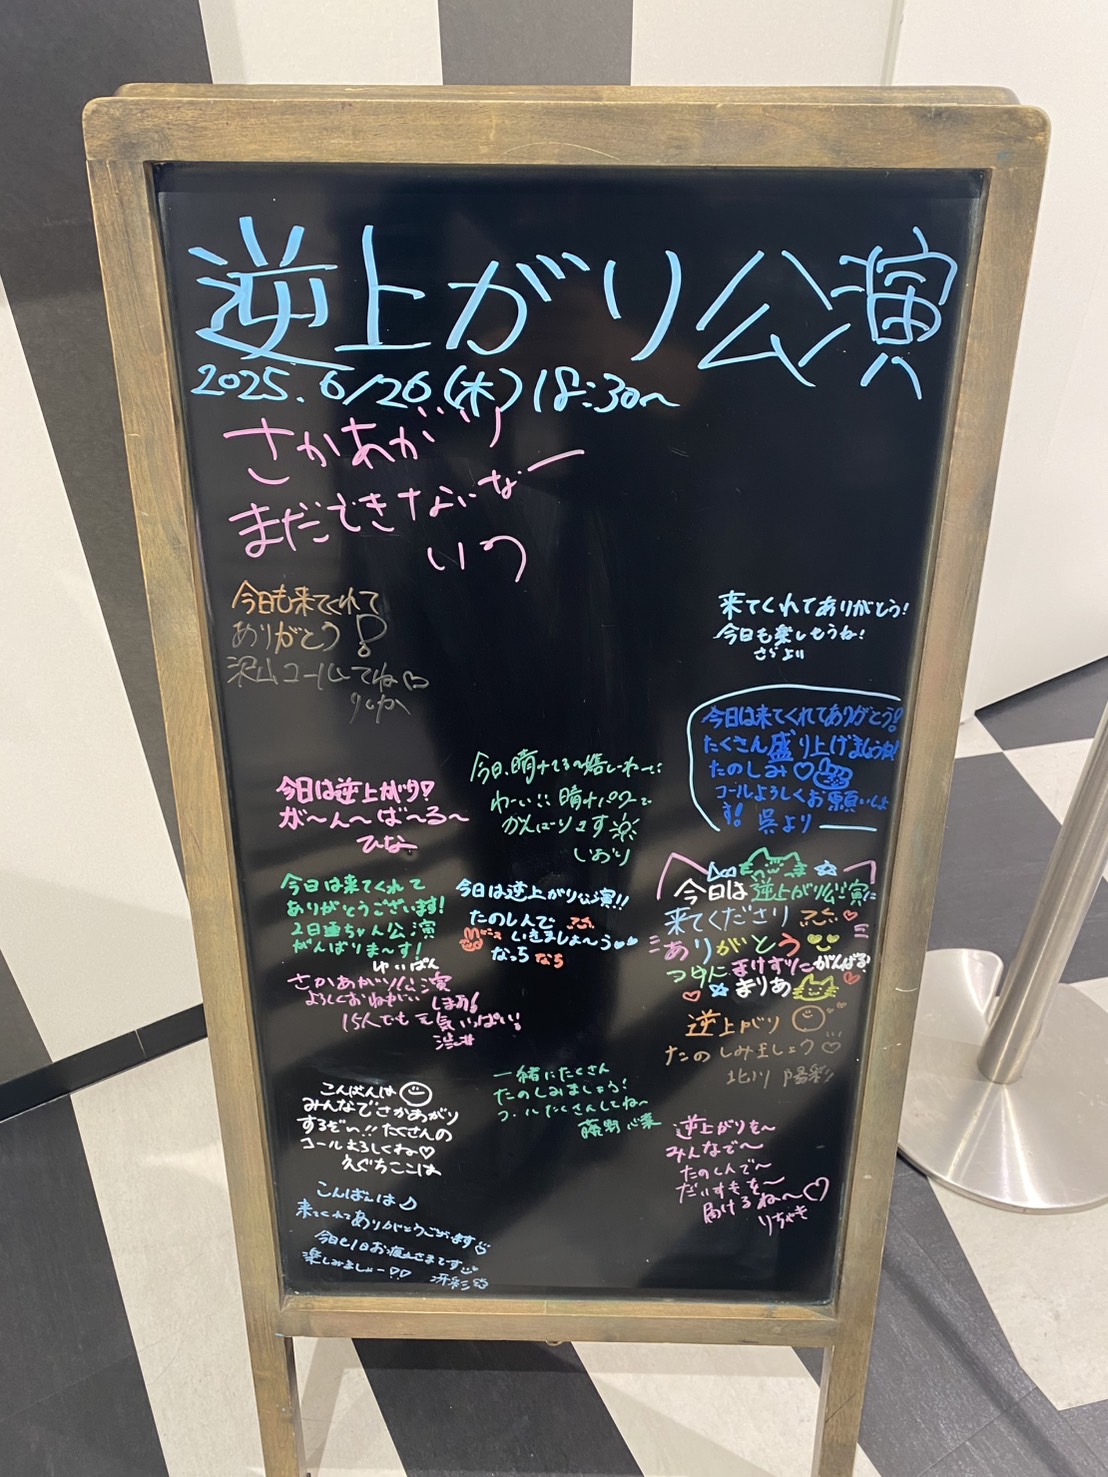 逆上がり公演
2025.6/26(木)18:30〜
さかあがり
まだできないなー
いつ
今日も来てくれて
ありがとう!
沢山コールしてね♡
りんか
来てくれてありがとう!
今日も楽しもうね!
さらより
今日は来てくれてありがとう!
たくさん盛り上げましょうね!
たのしみ♡
コールよろしくお願いしま
す! 呉より
今日、晴れてる〜嬉しーわーい
わーい!!晴れパワーで
がんばります
しおり
今日は逆上がり!
が〜ん〜ば〜る〜
ひな
今日は来てくれて
ありがとうございます!
2日通ちゃん公演
がんばりま〜す!
ゆいぱん
今日は逆上がり公演!!
たのしんで
いきましょ〜う♡♡
なっち なち
今日は逆上がり公演に
来てくださり
ありがとう
つかれに まけずに がんばる!
まりあ
さかあがり公演
よろしくおねがい します!
15人でも元気いっぱい!
渋井
逆上がり
たのしみましょう♡
北川 陽彩
一緒にたくさん
たのしみましょう!
コールたくさんしてね〜
藤野心葉
こんばんは
みんなでさかあがり
するぞい!!たくさんの
コールよろしくね♡
えぐちここは
逆上がりを〜
みんなで〜
たのしんで〜
だいすきを〜
届けるね〜♡
りちゃも
こんばんは♪
来てくれてありがとうございます
今日も1日お疲れさまです
楽しみましょー♡♡ 冴彩